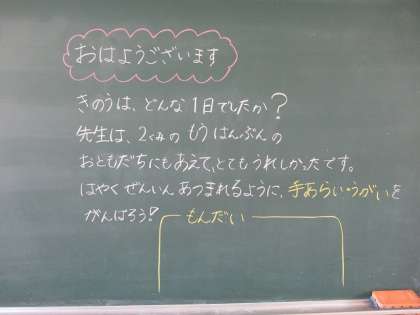 おはようございます
きのうは、どんな1日でしたか?
先生は、2くみの もうはんぶんの
おともだちにもあえて、とてもうれしかったです。
はやくぜんいんあつまれるように、手あらい・うがいを
がんばろう!
もんだい